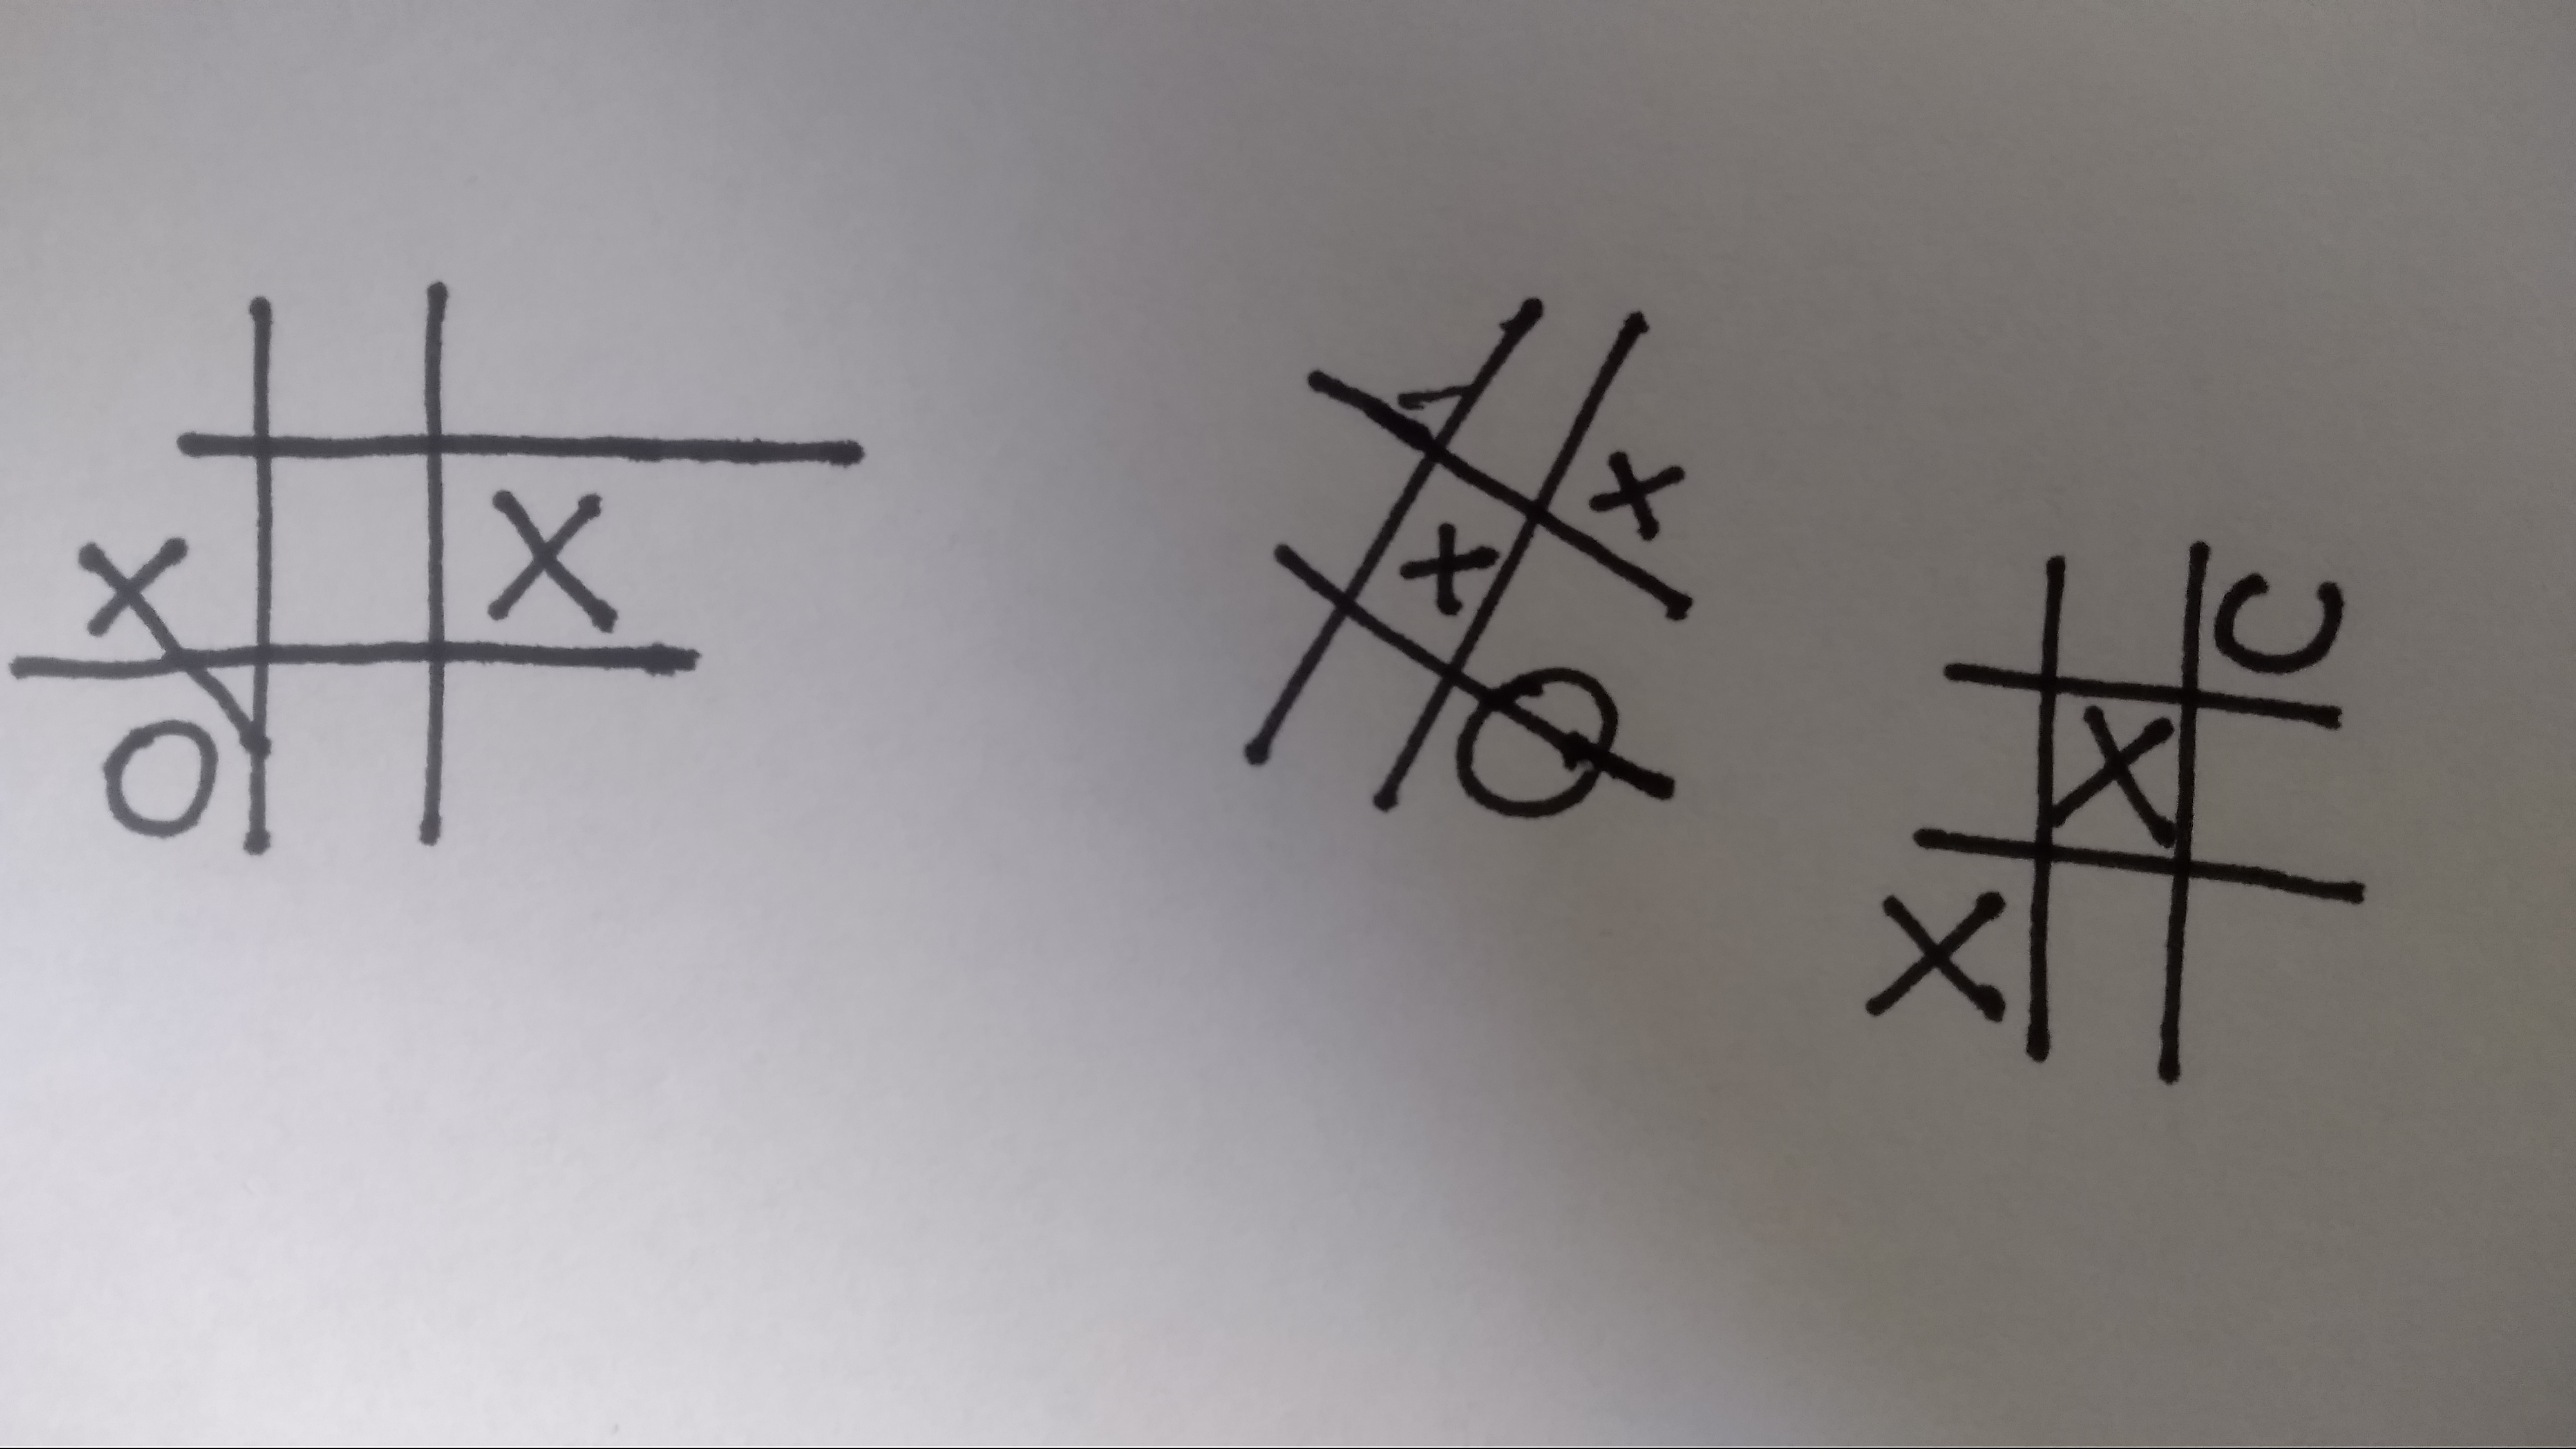 X X
O
X
X
O
C
X
X